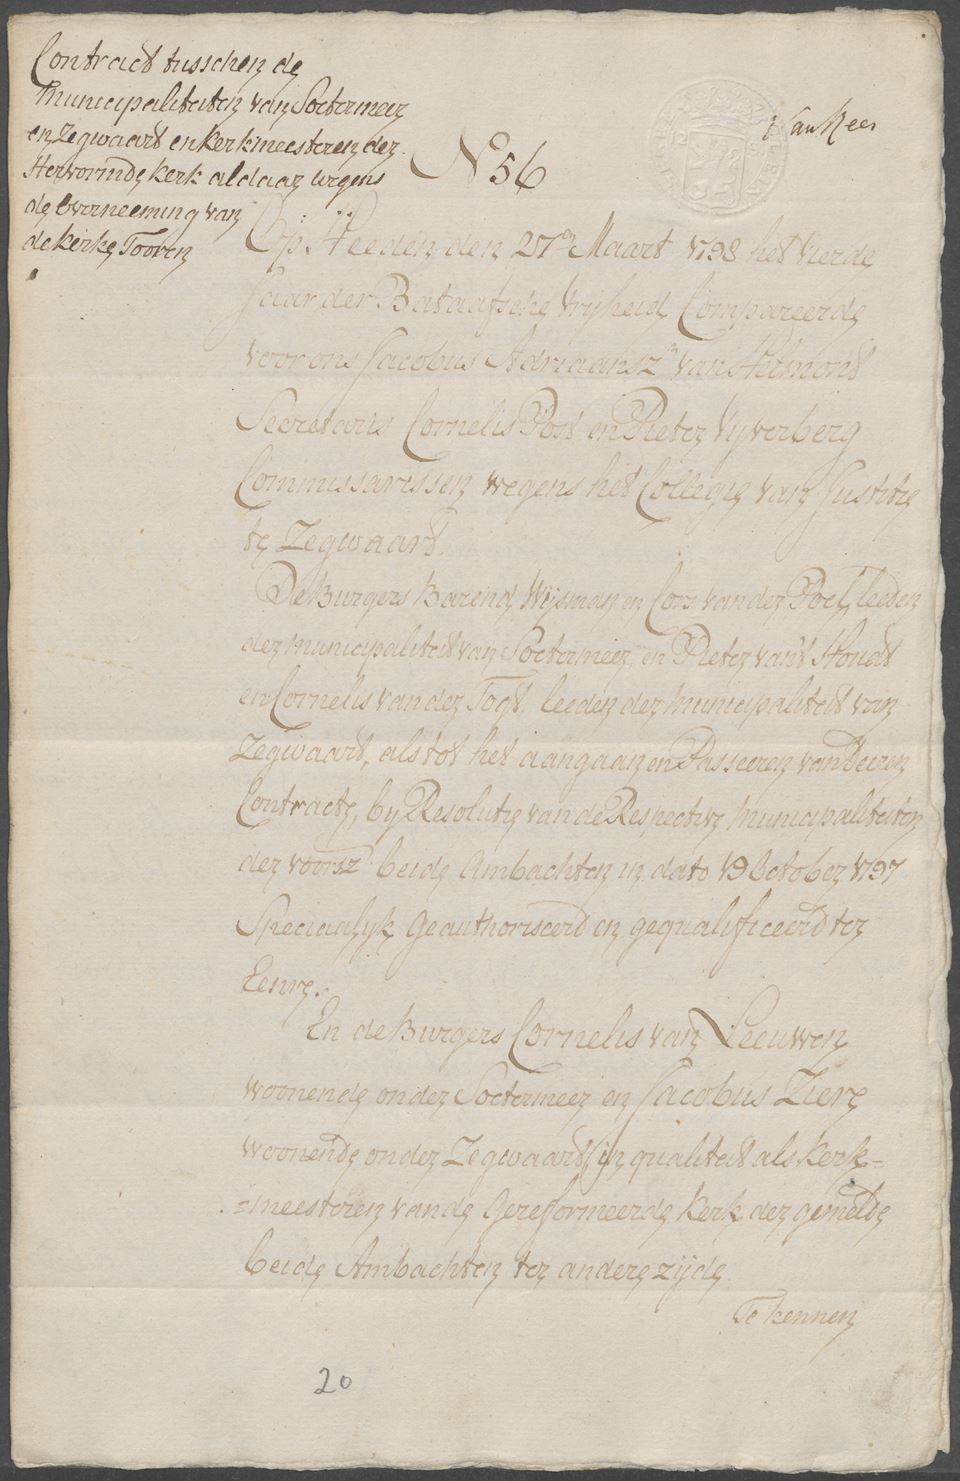 Contract tusschen de
Municipaliteiten van Soetermeer
en Zegwaard en kerkmeesteren der
Hervormde kerk aldaar wegens
de overneeming van
de kerke Tooren
N.o 56
Op Heeden den 27en Maart 1798 het vierde
Jaar der Bataafsche Vrijheid, Compareerde
voor ons Jacobus Adriaansz.n van Helmond
Secretaris Cornelis Post en Pieter Vijverberg
Commissarissen wegens het Collegie van Justitie
te Zegwaard.
De Burgers Barend Wijsman en Cors van der Poel, leeden
der Municipaliteit van Soetermeer, en Pieter van't Houdt
en Cornelis van der Togt, leeden der Municipaliteit van
Zegwaard, als tot het aangaan en Passeeren van deezen
Contracte, by Resolutie van de Respective Municipaliteiten
der voorsz. beide Ambachten in dato 19 October 1797
Speciaalijk Geauthoriseerd en gequalificeerd ter
Eenre.
En de Burgers Cornelis van Leeuwen
woonende onder Soetermeer en Jacobus Ziere
woonende onder Zegwaard, in qualiteit als kerk=
=meesteren van de Gereformeerde kerk der gemelde
beide Ambachten ter andere zijde
Te kennen
20